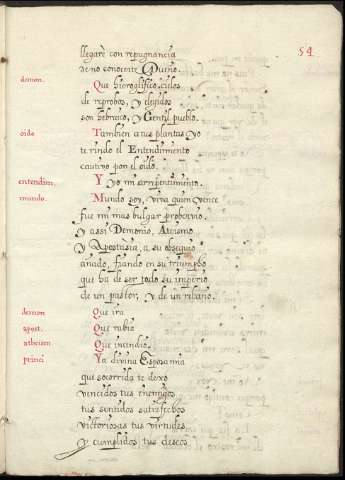 54
llegare con repugnancia
de no conocerte Dueño.
demon. Que hieroglifico, cielos
de reprobos, y elegidos
son hebraico, y Gentil pueblo.
oido Tambien a tus plantas yo
te rindo el Entendimiento
cautivo por el oido.
entendim. Y yo mi arrepentimiento.
mundo. Mundo soy, viva quien vence
fue mi mas bulgar probervio.
y assi Demonio, Ateismo
y Apostasia, a su obsequio
añado, fiando en su triumpho
que ha de ser todo su imperio
de un pastor, y de un rebaño.
demon Que ira
apost. Que rabia
atheism Que incendio.
princi Ya divina Esposa mia
que socorrida te dexo
vencidos tus enemigos
tus sentidos satisfechos
victoriosas tus virtudes
y cumplidos tus deseos